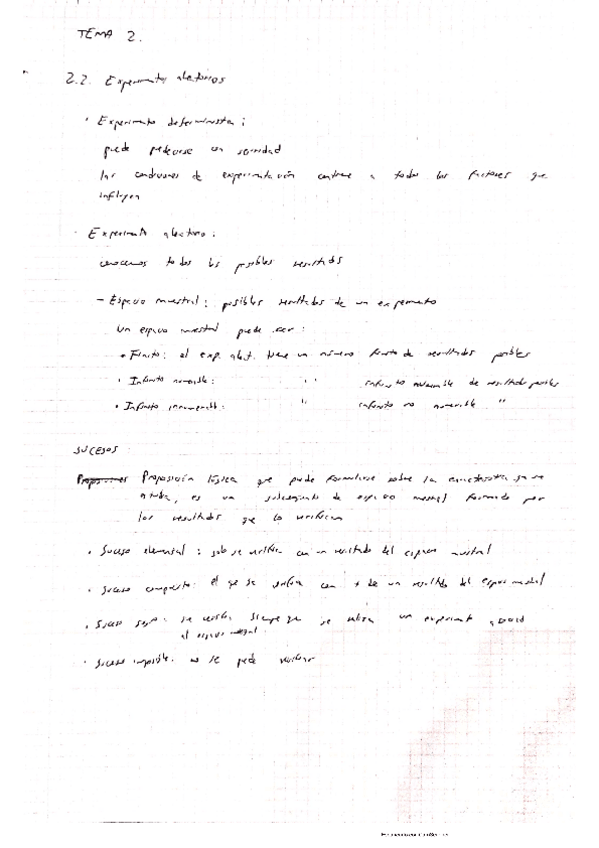 TEMA 2.
2.2. Experimentos aleatorios
• Experimento determinista:
puede predecirse con
las condiciones de experimentación a todos los factores que
influyen
• Experimento aleatorio:
conocemos todos los posibles resultados
– Espacio muestral: posibles resultados de un experimento
Un espacio muestral puede ser:
• Finito: el exp. aleat. tiene un número finito de resultados posibles
• Infinito numerable: " infinito numerable de resultados posibles
• Infinito innumerable: " infinito no numerable "
SUCESOS:
Proposición lógica que puede formularse sobre la característica que se
es un subconjunto de espacio muestral formado por
los resultados que lo verifican
• Suceso elemental: solo se verifica con un resultado del espacio muestral
• Suceso compuesto: el que se verifica con + de un resultado del espacio muestral
• Suceso seguro: se verifica siempre que se realiza un experimento
el espacio muestral
• Suceso imposible: no se puede verificar